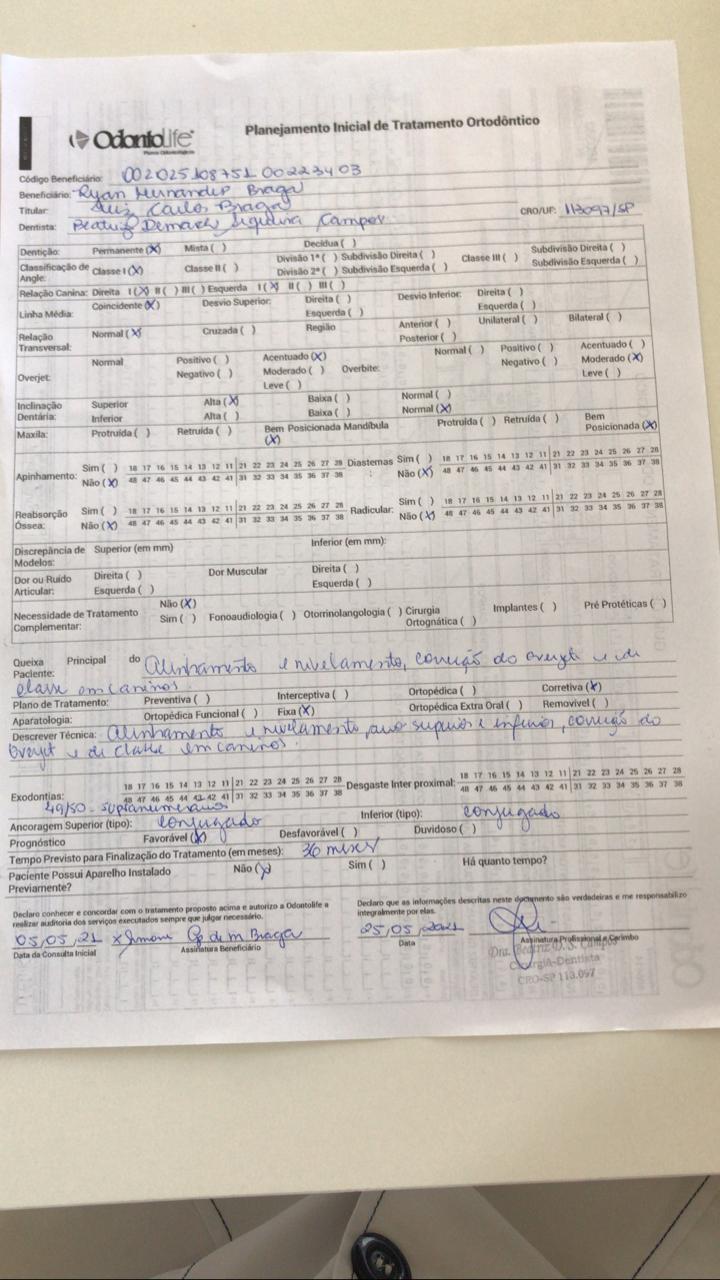 OdontoLife®
Planos Odontológicos
Planejamento Inicial de Tratamento Ortodôntico
Código Beneficiário: 002025108751 00223403
Beneficiário: Ryan Hernandes Braga
Titular: Luiz Carlos Braga
CRO/UF: 113097/SP
Dentista: Beatriz Campos
Dentição: Permanente (X) Mista ( ) Decídua ( )
Classificação de Angle: Classe I (X) Classe II ( ) Divisão 1ª ( ) Subdivisão Direita ( ) Classe III ( ) Subdivisão Direita ( )
Divisão 2ª ( ) Subdivisão Esquerda ( ) Subdivisão Esquerda ( )
Relação Canina: Direita I (X) II ( ) III ( ) Esquerda I (X) II ( ) III ( )
Linha Média: Coincidente (X) Desvio Superior: Direita ( ) Desvio Inferior: Direita ( )
Esquerda ( ) Esquerda ( )
Relação Transversal: Normal (X) Cruzada ( ) Região Anterior ( ) Unilateral ( ) Bilateral ( )
Posterior ( )
Overjet: Normal Positivo ( ) Acentuado (X) Overbite: Normal ( ) Positivo ( ) Acentuado ( )
Negativo ( ) Moderado ( ) Negativo ( ) Moderado (X)
Leve ( ) Leve ( )
Inclinação Dentária: Superior Alta (X) Baixa ( ) Normal ( )
Inferior Alta ( ) Baixa ( ) Normal (X)
Maxila: Protruída ( ) Retruída ( ) Bem Posicionada (X) Mandíbula Protruída ( ) Retruída ( ) Bem Posicionada (X)
Apinhamento: Sim ( ) 18 17 16 15 14 13 12 11 21 22 23 24 25 26 27 28 Diastemas: Sim ( ) 18 17 16 15 14 13 12 11 21 22 23 24 25 26 27 28
Não (X) 48 47 46 45 44 43 42 41 31 32 33 34 35 36 37 38 Não (X) 48 47 46 45 44 43 42 41 31 32 33 34 35 36 37 38
Reabsorção Óssea: Sim ( ) 18 17 16 15 14 13 12 11 21 22 23 24 25 26 27 28 Radicular: Sim ( ) 18 17 16 15 14 13 12 11 21 22 23 24 25 26 27 28
Não (X) 48 47 46 45 44 43 42 41 31 32 33 34 35 36 37 38 Não (X) 48 47 46 45 44 43 42 41 31 32 33 34 35 36 37 38
Discrepância de Modelos: Superior (em mm) Inferior (em mm):
Dor ou Ruído Articular: Direita ( ) Dor Muscular Direita ( )
Esquerda ( ) Esquerda ( )
Necessidade de Tratamento Complementar: Não (X)
Sim ( ) Fonoaudiologia ( ) Otorrinolangologia ( ) Cirurgia Ortognática ( ) Implantes ( ) Pré Protéticas ( )
Queixa Principal do Paciente: Alinhamento e nivelamento, correção do overjet e de
classe em caninos.
Plano de Tratamento: Preventiva ( ) Interceptiva ( ) Ortopédica ( ) Corretiva (X)
Aparatologia: Ortopédica Funcional ( ) Fixa (X) Ortopédica Extra Oral ( ) Removível ( )
Descrever Técnica: Alinhamento e nivelamento, arco superior e inferior, correção do
overjet e de classe em caninos.
Exodontias: 18 17 16 15 14 13 12 11 21 22 23 24 25 26 27 28 Desgaste Inter proximal: 18 17 16 15 14 13 12 11 21 22 23 24 25 26 27 28
48 47 46 45 44 43 42 41 31 32 33 34 35 36 37 38 48 47 46 45 44 43 42 41 31 32 33 34 35 36 37 38
49/50 - supranumerários
Ancoragem Superior (tipo): conjugado Inferior (tipo): conjugado
Prognóstico Favorável (X) Desfavorável ( ) Duvidoso ( )
Tempo Previsto para Finalização do Tratamento (em meses): 36 meses
Paciente Possui Aparelho Instalado Previamente? Não (X) Sim ( ) Há quanto tempo?
Declaro conhecer e concordar com o tratamento proposto acima e autorizo a Odontolife a
realizar auditoria dos serviços executados sempre que julgar necessário.
Declaro que as informações descritas neste documento são verdadeiras e me responsabilizo
integralmente por elas.
05/05/21 x Simone m Braga
Data da Consulta Inicial Assinatura Beneficiário
05/05/2021
Data Assinatura Profissional e Carimbo
Dra. Beatriz D. S. Campos
Cirurgiã-Dentista
CRO-SP 113.097